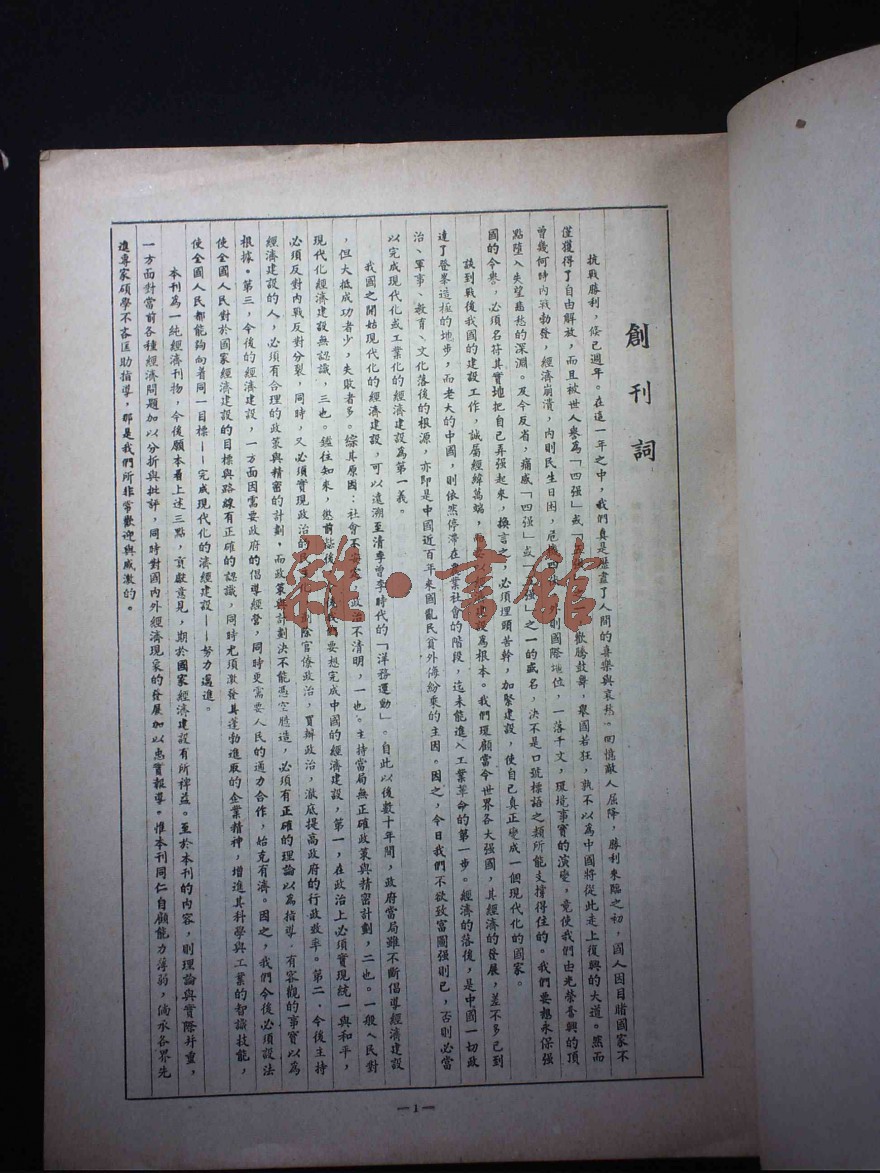 創刊詞
抗戰勝利，倏已週年。在這一年之中，我們真是歷盡了人間的喜樂與哀愁。回憶敵人屈降，勝利來臨之初，國人因目睹國家不
僅獲得了自由解放，而且被世人譽為「四强」或「 歡騰鼓舞，舉國若狂，孰不以為中國將從此走上復興的大道。然而
曾幾何時內戰勃發，經濟崩潰，內則民生日困，危機四 外則國際地位，一落千丈，環境事實的演變，竟使我們由光榮譽興的頂
點墮入失望悲愁的深淵。及今反省，痛感「四强」或「 强」之一的威名，決不是口號標語之類所能支撐得住的。我們要想永保强
國的令譽，必須名符其實地把自己弄强起來，換言之，必須埋頭苦幹，加緊建設，使自己真正變成一個現代化的國家。
談到戰後我國的建設工作，誠屬經緯萬端， 建設為根本。我們環顧當今世界各大强國，其經濟的發展，差不多已到
達了登峯造極的地步，而老大的中國，則依然停滯在農業社會的階段，迄未能進入工業革命的第一步。經濟的落後，是中國一切政
治、軍事、教育、文化落後的根源，亦即是中國近百年來國亂民貧外侮紛乘的主因。因之，今日我們不欲致富圖强則已，否則必當
以完成現代化或工業化的經濟建設為第一義。
我國之開始現代化的經濟建設，可以遠溯至清季曾李時代的「洋務運動」。自此以後數十年間，政府當局雖不斷倡導經濟建設
，但大抵成功者少，失敗者多。綜其原因：社會不安定，政治不清明，一也。主持當局無正確政策與精密計劃，二也。一般人民對
現代化經濟建設無認識，三也。鑑往知來，懲前毖後，今後我們要想完成中國的經濟建設，第一，在政治上必須實現統一與和平，
必須反對內戰反對分裂，同時，又必須實現政治的民主化， 除官僚政治，買辦政治，澈底提高政府的行政效率。第二．今後主持
經濟建設的人，必須有合理的政策與精密的計劃，而政策與計劃決不能憑空臆造，必須有正確的理論以為指導，有客觀的事實以為
根據。第三，今後的經濟建設，一方面因需要政府的倡導經營，同時更需要人民的通力合作，始克有濟。因之，我們今後必須設法
使全國人民對於國家經濟建設的目標與路線有正確的認識，同時尤須激發其蓬勃進取的企業精神，增進其科學與工業的智識技能，
使全國人民都能夠向着同一目標——完成現代化的濟經建設——努力邁進。
本刊為一純經濟刊物，今後願本着上述三點，貢獻意見，期於國家經濟建設有所裨益。至於本刊的內容，則理論與實際并重，
一方面對當前各種經濟問題加以分折與批評，同時對國內外經濟現象的發展加以忠實報導。惟本刊同仁自顧能力薄弱，倘承各界先
進專家碩學不吝匡助指導，那是我們所非常歡迎與感激的。
—1—
雜·書館